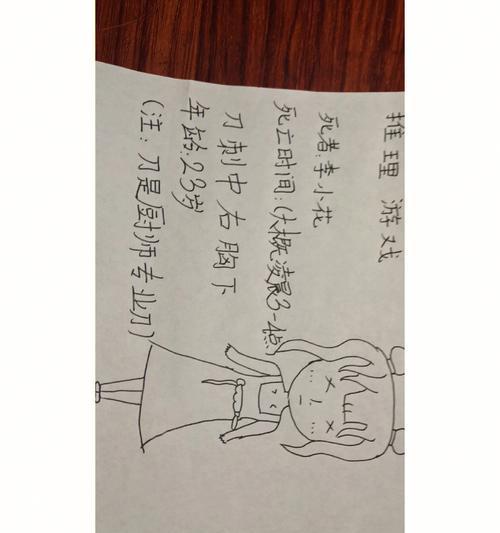 推理 游戏
死者:李小花
死亡时间:(大概凌晨3-4点)
刀刺中右胸下
年龄:23岁
(注:刀是厨师专业刀)